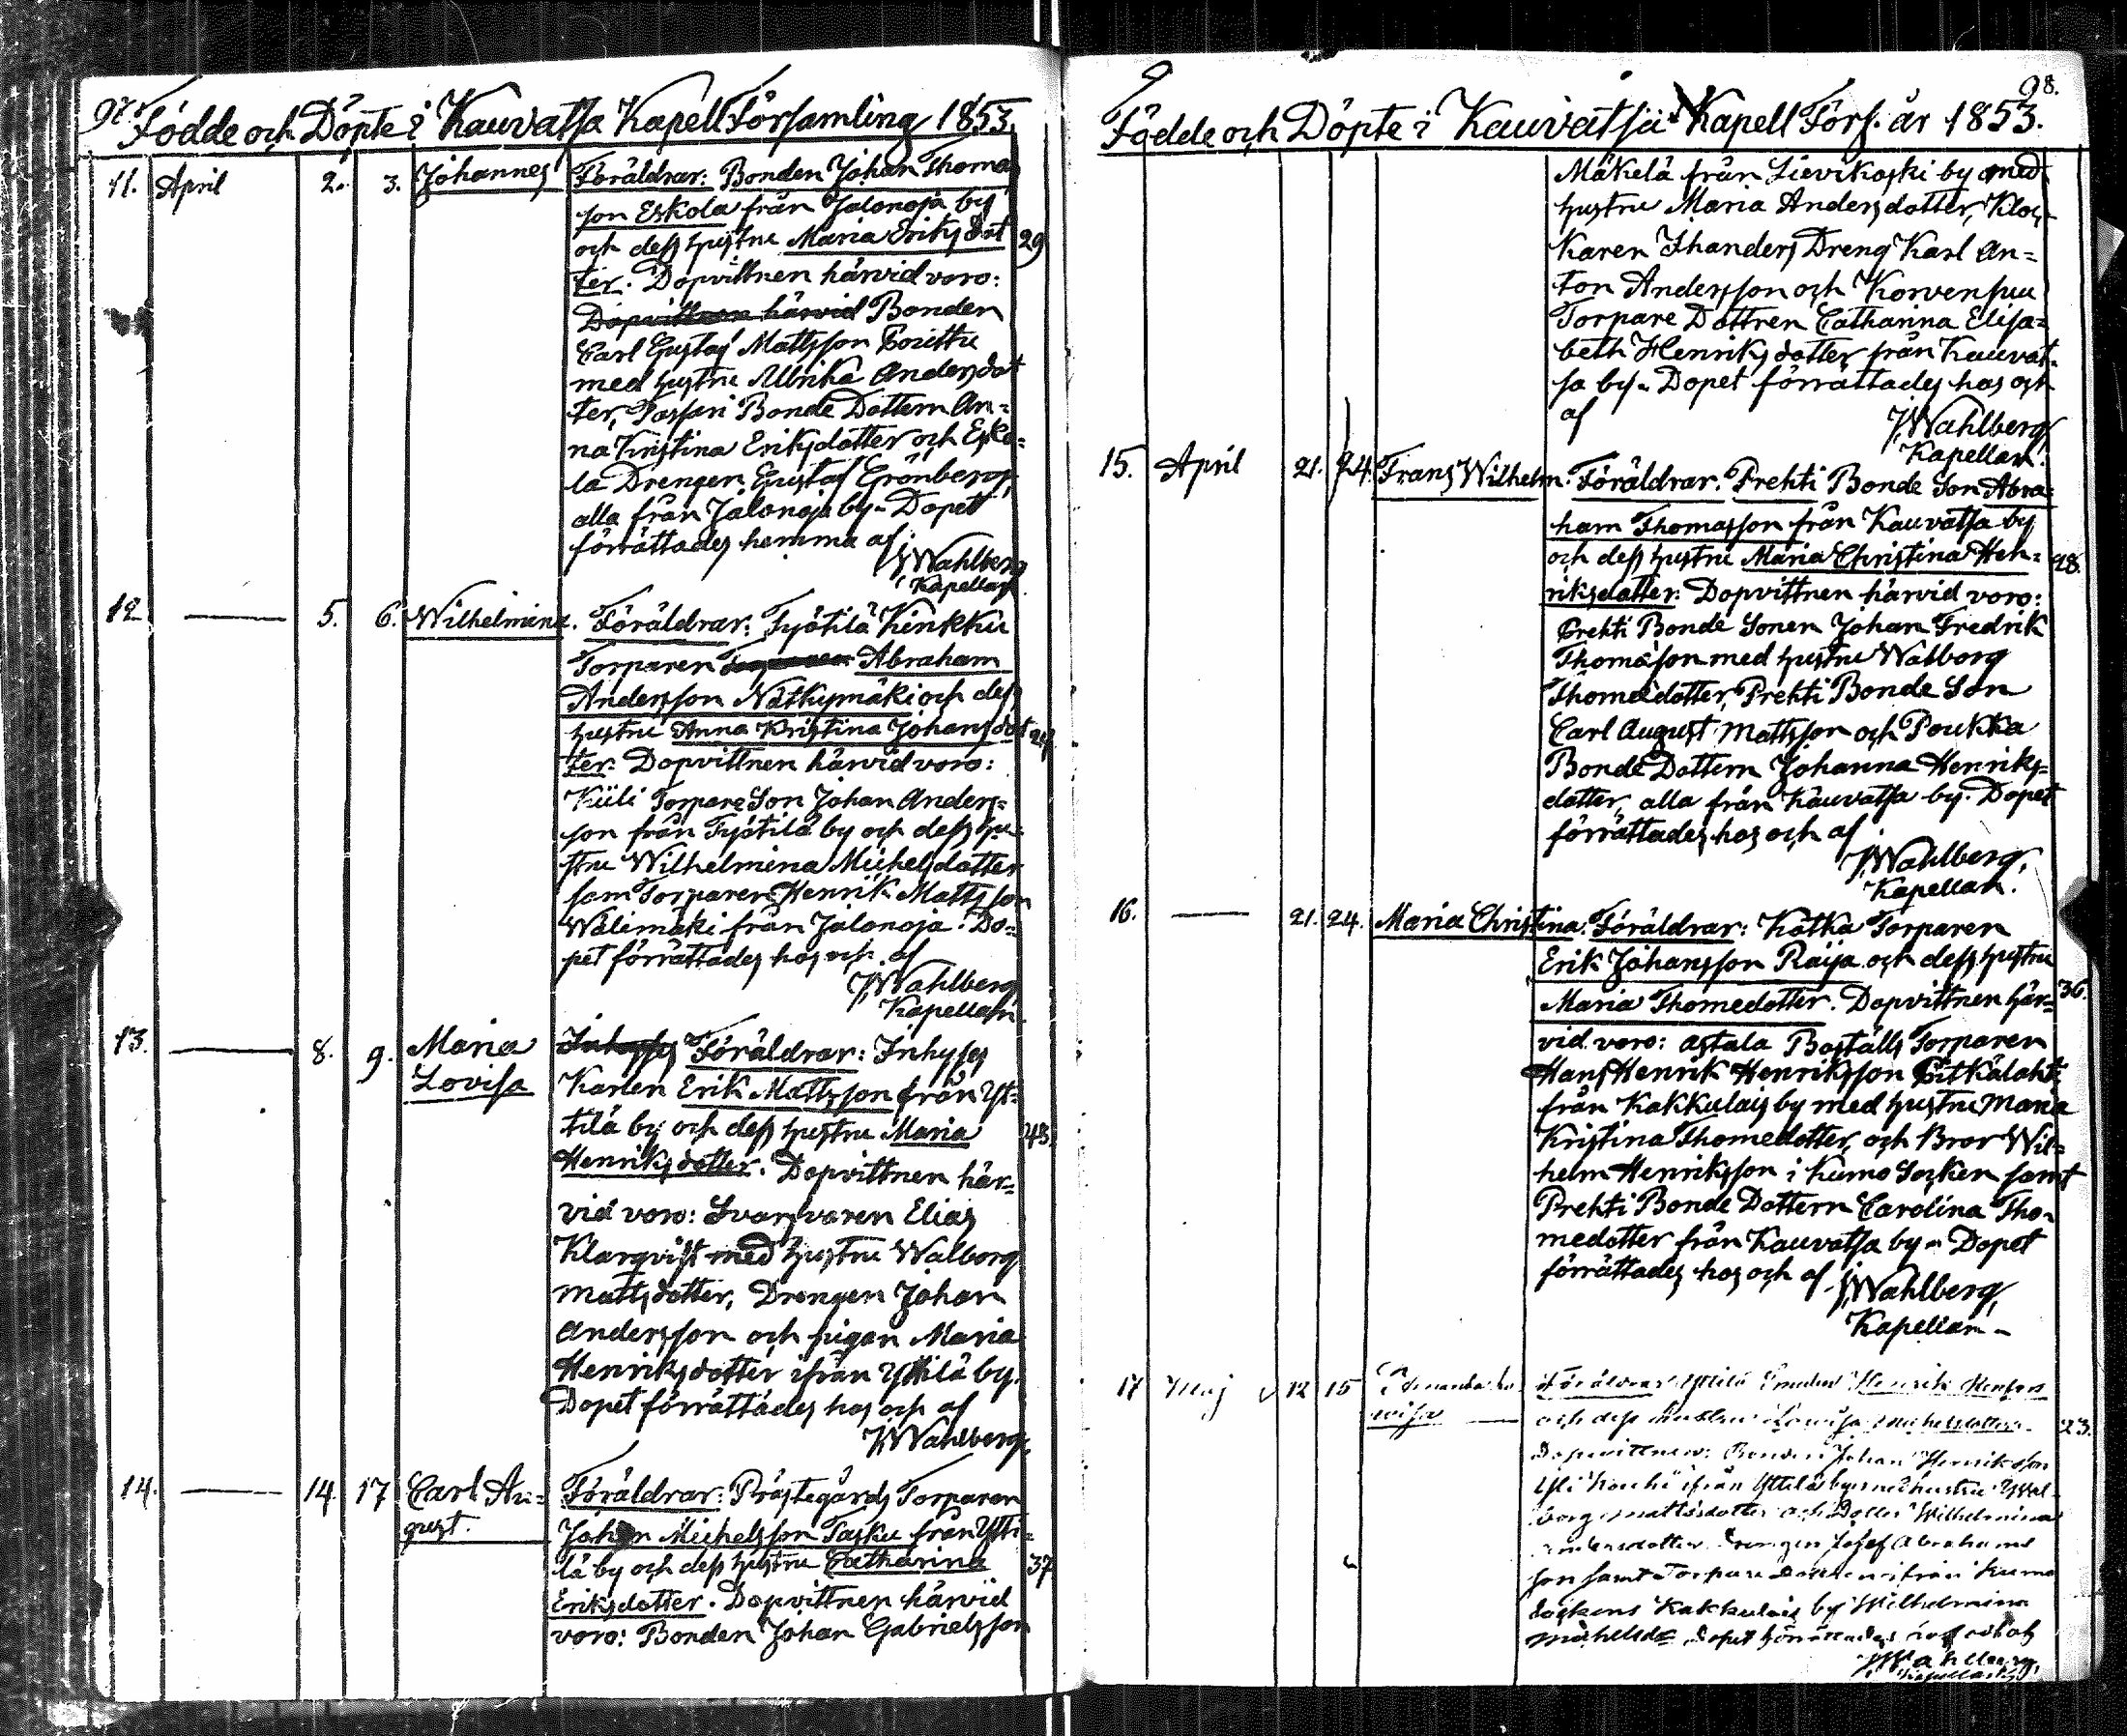 97.
Födde och Döpte i Kauvatsa Kapell Församling 1853.
11. April 2. 3. Johannes Föräldrar: Bonden Johan Thomas
son Eskola från Jalonoja by
och dess hustru Maria Eriksdot 29
ter. Dopvittnen härvid voro:
Dopvittnen härvid Bonden
Carl Gustaf Mattsson
med hustru Ulrika Andersdot
ter, Passari Bonde Dottern An=
na Kristina Eriksdotter och Esko=
la Drengen Gustaf Grönberg,
alla från Jalonoja by. Dopet
förrättades hemma af
J Wahlberg
Kapellan.
12 — 5. 6. Wilhelmina. Föräldrar: Työtilä Kinkku
Torparen Abraham
Andersson Nätkymäki och dess
hustru Anna Kristina Johansdot
ter. Dopvittnen härvid voro:
Kiili Torpare Son Johan Anders=
son från Työtilä by och dess hu=
stru Wilhelmina Michelsdotter
samt Torparen Henrik Mattsson
Wälimäki från Jalonoja. Do=
pet förrättades hos och af
J Wahlberg
Kapellan.
13. — 8. 9. Maria Föräldrar: Inhyses
Lovisa Karlen Erik Mattsson från Yt=
tilä by och dess hustru Maria 43.
Henriksdotter. Dopvittnen här=
vid voro: Svarfvaren Elias
Klarqvist med hustru Walborg
Mattsdotter, Drengen Johan
Andersson och pigan Maria
Henriksdotter ifrån Yttilä by.
Dopet förrättades hos och af
J Wahlberg,
14. — 14. 17 Carl Au= Föräldrar: Prästegårds Torparen
gust. Johan Michelsson Tasku från Ytti=
lä by och dess hustru Catharina 37
Eriksdotter. Dopvittnen härvid
voro: Bonden Johan Gabrielsson
98.
Födde och Döpte i Kauvatsa Kapell Förs. år 1853.
Mäkelä från Lievikoski by med
hustru Maria Andersdotter, Kloc=
karen Thanders Dreng Karl An=
ton Andersson och Korvenpuu
Torpare Dottren Catharina Elisa=
beth Henriksdotter från Kauvat=
sa by. Dopet förrättades hos och
af J Wahlberg
Kapellan.
15. April 21. 24. Frans Wilhelm. Föräldrar. Prehti Bonde Son Abra=
ham Thomasson från Kauvatsa by
och dess hustru Maria Christina Hen= 28.
riksdotter. Dopvittnen härvid voro:
Prehti Bonde Sonen Johan Fredrik
Thomasson med hustru Walborg
Thomedotter, Prehti Bonde Son
Carl August Mattsson och Poukka
Bonde Dottern Johanna Henriks=
dotter, alla från Kauvatsa by. Dopet
förrättades hos och af
J Wahlberg,
Kapellan.
16. — 21. 24. Maria Christina. Föräldrar: Kotka Torparen
Erik Johansson Raija och dess hustru
Maria Thomedotter. Dopvittnen här= 36.
vid voro: Astala Boställs Torparen
Hans Henrik Henriksson Pitkälahti
från Kakkulais by med hustru Maria
Kristina Thomedotter, och Bror Wil=
helm Henriksson i Kumo Socken samt
Prehti Bonde Dottern Carolina Tho=
medotter från Kauvatsa by. Dopet
förrättades hos och af J Wahlberg,
Kapellan
17 Maj 12 15 Föräldrar Yttilä Henrik
visa och dess hustru Lovisa Michelsdotter. 23.
Dopvittnen: Bonden Johan Henriksson
Yli från Yttilä by med hustru Wal=
borg Mattsdotter och Dotter Wilhelmina
Drengen Josef Abrahams
son samt Torpare Dottern ifrån Kumo
Sockens Kakkulais by Wilhelmina
Michelsdr Dopet förrättades
J Wahlberg,
Kapellan